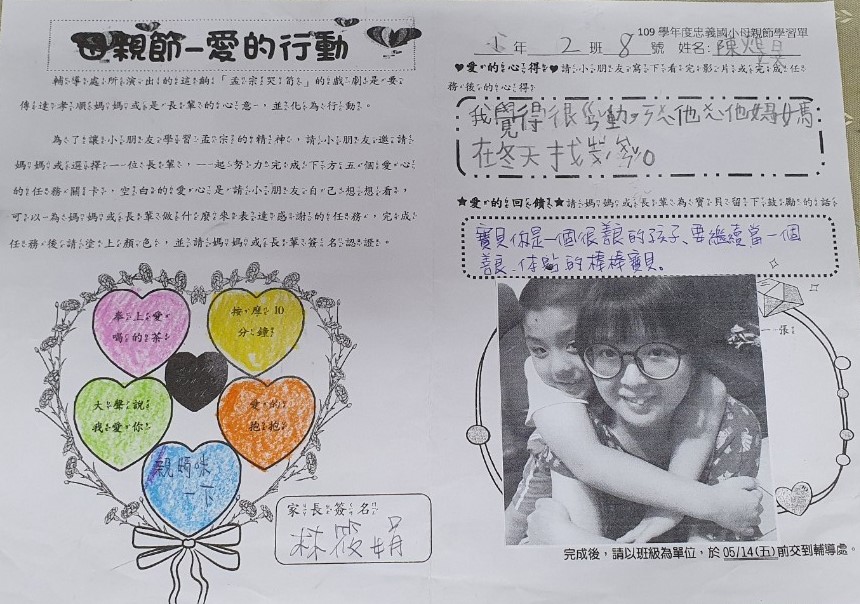 母親節-愛的行動
輔導處所演出的這齣「孟宗哭筍」的戲劇是要
傳達孝順媽媽或是長輩的心意，並化為行動。
為了讓小朋友學習孟宗的精神，請小朋友邀請
媽媽或選擇一位長輩，一起努力完成下方五個愛心
的任務關卡，空白的愛心是請小朋友自己想想看，
可以為媽媽或長輩做什麼來表達感謝的任務，完成
任務後請塗上顏色，並請媽媽或長輩簽名認證。
奉上愛
喝的茶
按摩10
分鐘
大聲說
我愛你
愛的
抱抱
親媽咪
一下
家長簽名
林筱娟
109學年度忠義國小母親節學習單
年 2 班 8 號 姓名：陳
♥愛的心得♥請小朋友寫下看完影片或完成任
務後的心得
我覺得很感動
在冬天找
★愛的回饋★請媽媽或長輩為寶貝留下鼓勵的話
寶貝你是一個很善良的孩子、要繼續當一個
善良、体貼的棒棒寶貝。
一張
完成後，請以班級為單位，於05/14(五)前交到輔導處。